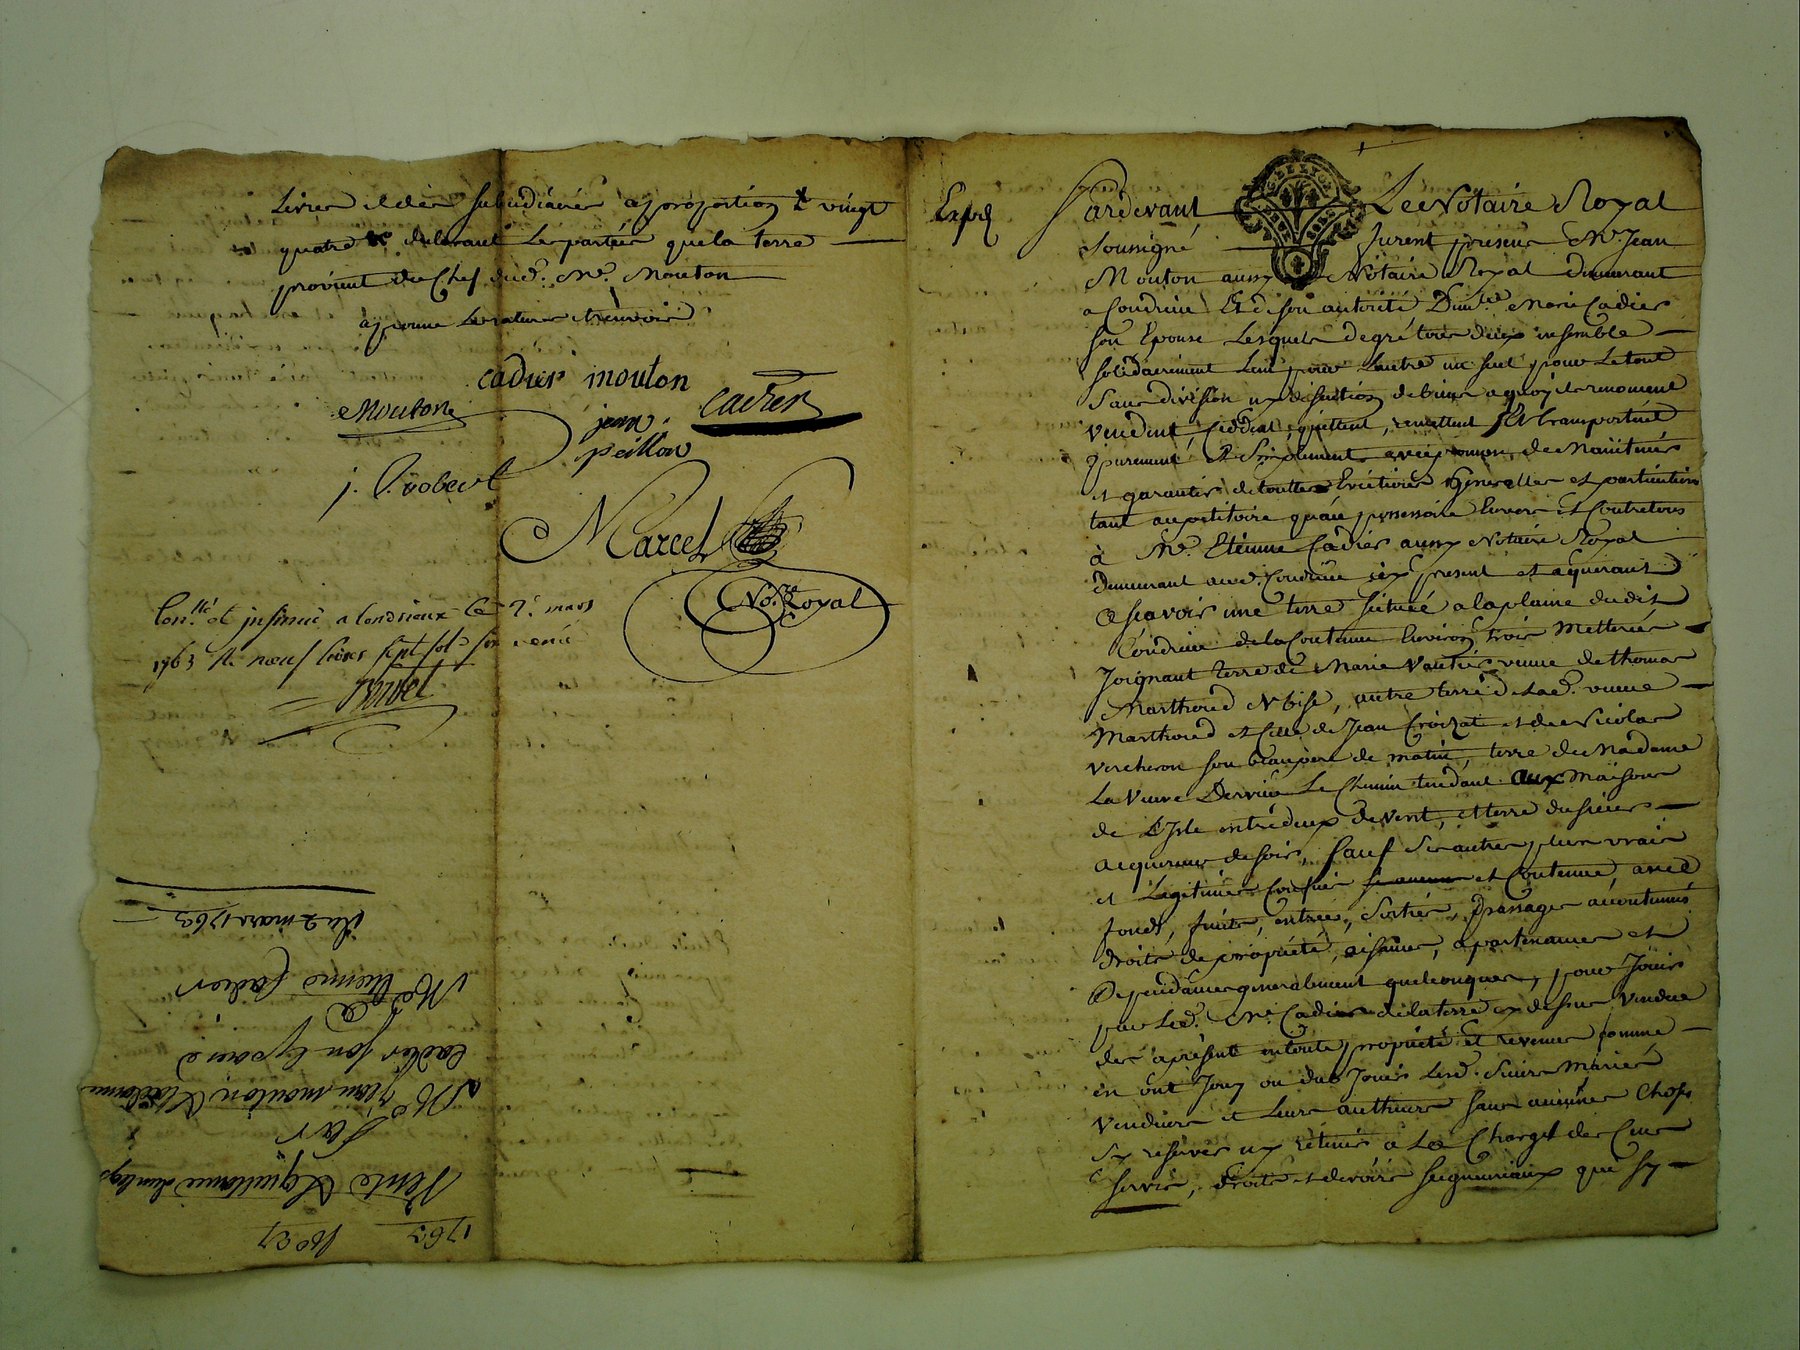 Livres et les subsidiaires a proportion & vingt
quatre declarant les parties que la terre
provient du Chef dud. Me. Mouton
approuvé
cadier mouton
Mouton
jean
peillon
cadier
j. Robert
Marcel
No.re Royal
Con.llé et insinué a Condrieux Ce 2e. mars
1763 R. neuf livres sept sols six denié
Expé
Pardevant Le Notaire Royal
Soussigné furent presens Me. Jean
Mouton aussy Notaire Royal demeurant
a Condrieu Et de son autorité Dem.lle Marie Cadier
son Epouse Lesquels de gré tous deux ensemble
solidairement Lun pour Lautre un seul pour Le tout
Sans division ny discution de biens a quoy ils renoncent
vendent, Ceddent, quittent, remettent Et transportent
purement Et Simplement avec promesse de Maintenir
et garantir de touttes Evictions Generalles et particulieres
tant au petitoire qu'au possessoire Envers Et Contre tous
à Me. Etienne Cadier aussy Notaire Royal
demeurant aud. Condrieu icy present et aquerant
Ascavoir une terre scituée a la plaine dudit
Condrieu de la Contenue Environ trois Metterées
Joignant terre de Marie Vautier veuve de thomas
Marthoud N bise, autre terre de Lad. veuve
Marthoud et celle de Jean Croizat et de Nicolas
vercheron son beaupere de matin, terre de Madame
La Veuve Dervieu Le Chemin tendant aux Maisons
de L'Isle entredeux de vent, et terre du sieur
acquereur de soir, sauf ses autres plus vrais
et Legitimes Confins et Contenue, avec
fonds, fruits, entrées, Sorties, passages acoutumés
droits de proprieté, aisances, apartenances et
Dependances generalement quelconques, pour Jouir
par Led. Me. Cadier de la terre cy dessus vendue
des apresent en toute proprieté et revenus comme
en ont Jouy ou dub Jouir Lesd. Sieurs Mariés
Vendeurs et Leurs autheurs sans aucunes Choses
sy reserver ny retenir à La Charge des Cens
servis, droits et devoirs seigneuriaux que sy
1763 No 27
Vente
Par
Me Jean mouton & demlle marie
Cadier son Epouse
A
Me Etienne Cadier
du 2 mars 1763